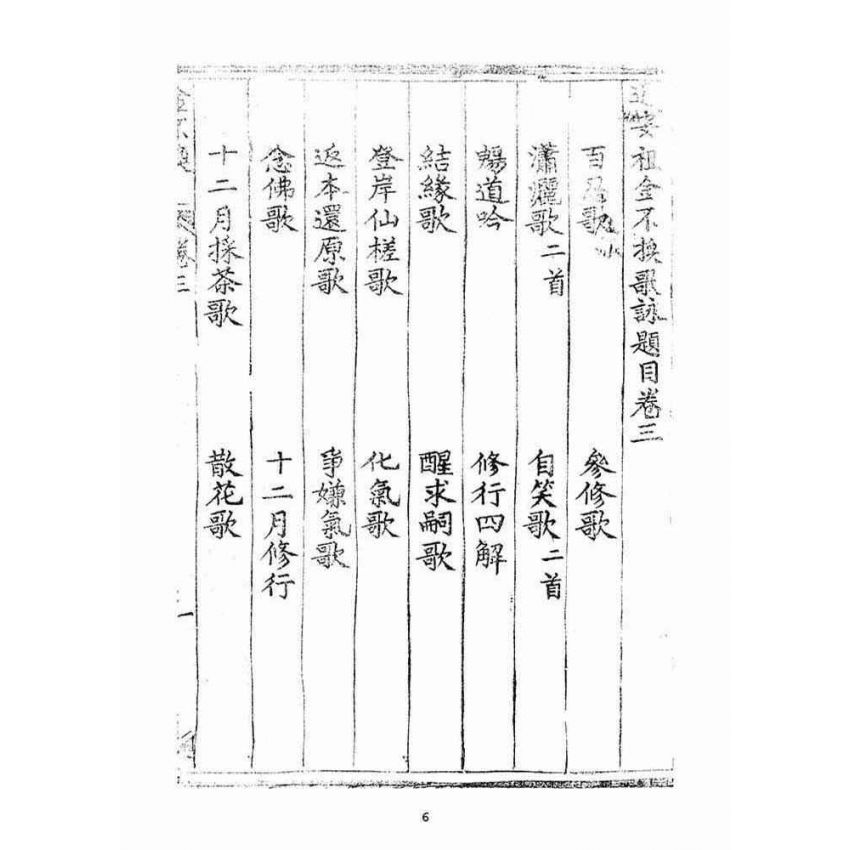 安祖金不換歌詠題目卷三
百 歌 參修歌
瀟灑歌二首 自笑歌二首
暢道吟 修行四解
結緣歌 醒求嗣歌
登岸仙槎歌 化氣歌
返本還原歌 爭嫌氣歌
念佛歌 十二月修行
十二月採茶歌 散花歌
金不換 卷三 一
6